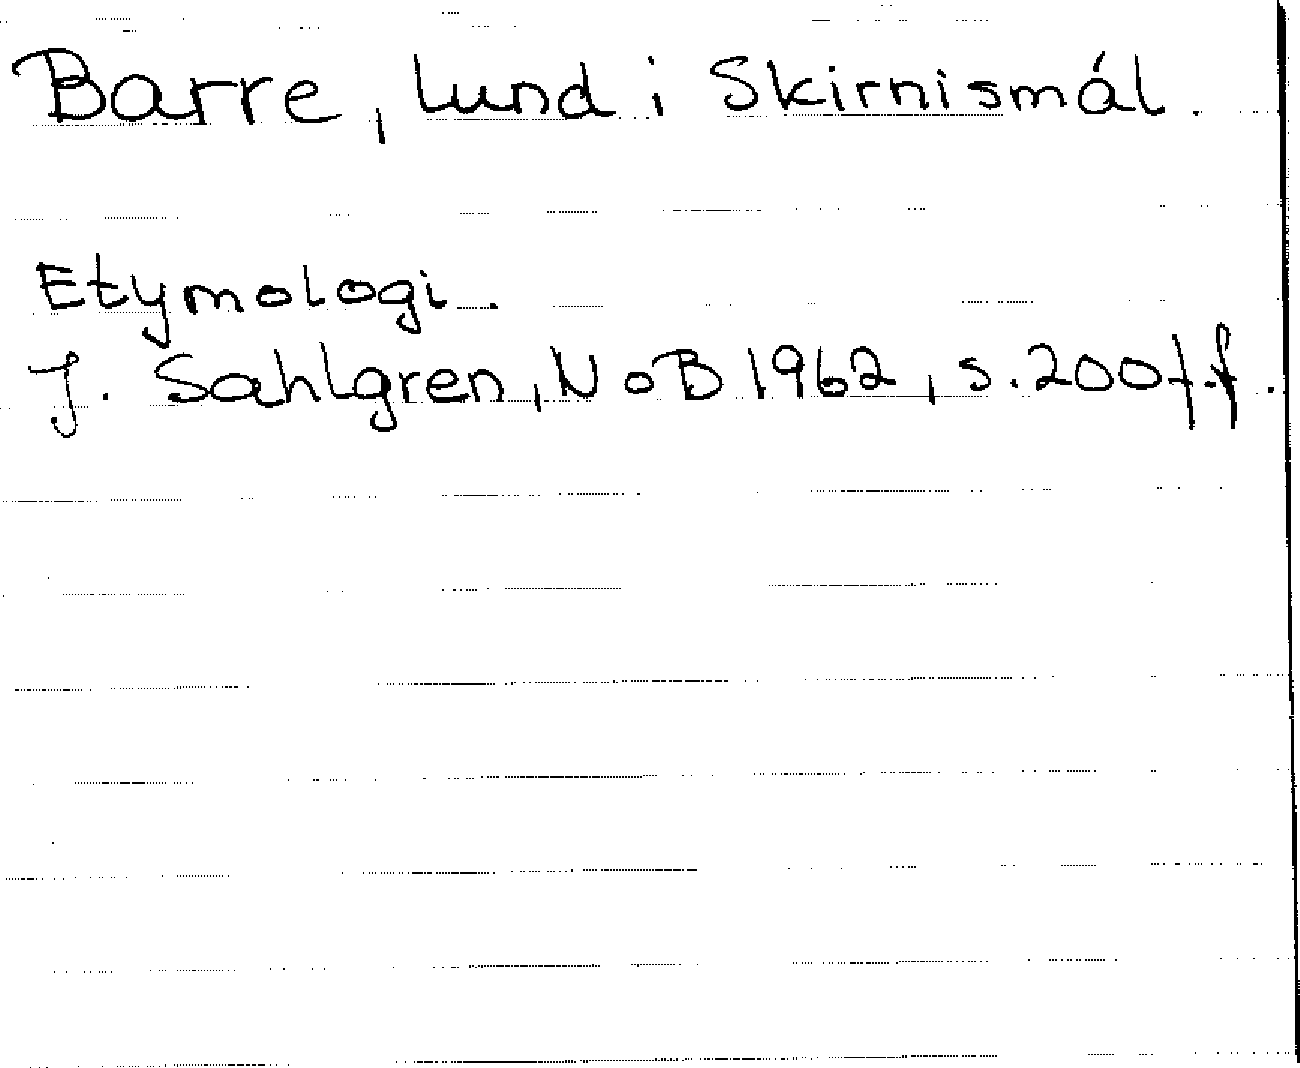 Barre, lund i Skirnismál.
Etymologi.
J. Sahlgren, NoB 1962, s. 200 f.f.